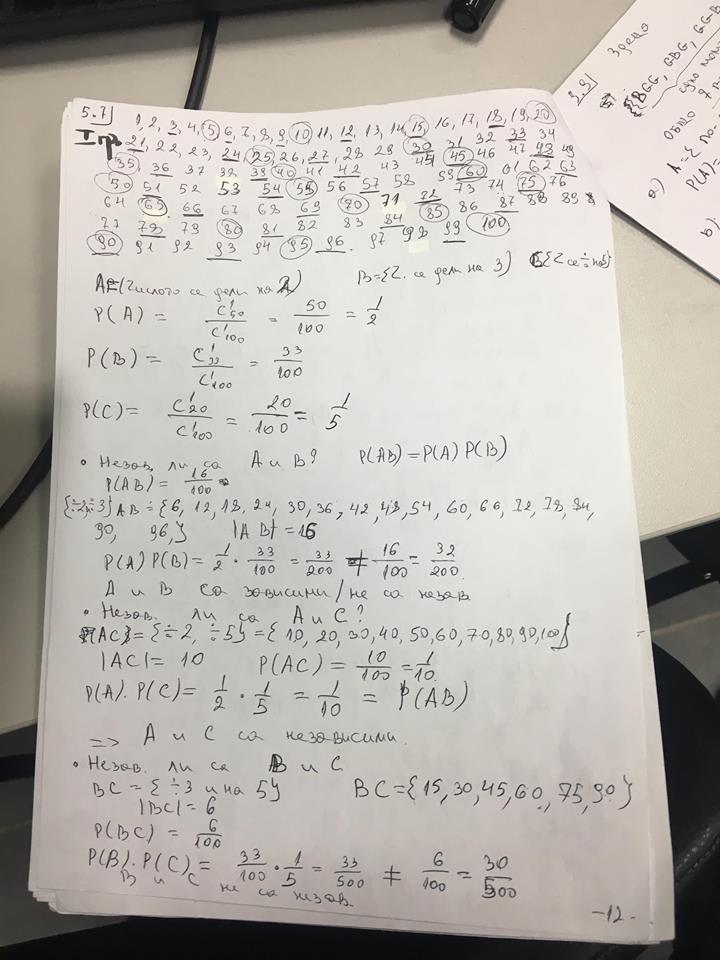 5.7) 1, 2, 3, 4, 5, 6, 7, 8, 9, 10 11, 12, 13, 14, 15, 16, 17, 18, 19, 20
I гр. 21, 22, 23, 24, 25, 26, 27, 28 29 30 31 32 33 34
35, 36 37 38 39 40 41 42 43 45 46 47 48 49
50 51 52 53 54 55 56 57 58 59 60 61 62 63
64 65 66 67 68 69 70 71 72 73 74 75 76
78 79 80 81 82 83 84 85 86 87 88 89
90 91 92 93 94 95 96. 97 98 99 100
A={числото се дели на 2} B={Z. се дели на 3} C{Z се ÷ на 5}
P(A) = C¹50/C¹100 = 50/100 = 1/2
P(B) = C¹33/C¹100 = 33/100
P(C) = C¹20/C¹100 = 20/100 = 1/5
• Незав. ли са A и B? P(AB)=P(A)P(B)
P(AB) = 16/100
{÷2,÷3} AB = {6, 12, 18, 24, 30, 36, 42, 48, 54, 60, 66, 72, 78, 84,
90, 96,} |AB| = 16
P(A)P(B) = 1/2 · 33/100 = 33/200 ≠ 16/100 = 32/200
A и B са зависими/не са незав
• Незав. ли са A и C?
{AC} = {÷2, ÷5} = {10, 20, 30, 40, 50, 60, 70, 80, 90, 100}
|AC| = 10 P(AC) = 10/100 = 1/10
P(A). P(C) = 1/2 · 1/5 = 1/10 = P(AB)
=> A и C са независими.
• Незав. ли са B и C
BC = {÷3 и на 5} BC={15, 30, 45, 60, 75, 90}
|BC| = 6
P(BC) = 6/100
P(B). P(C) = 33/100 · 1/5 = 33/500 ≠ 6/100 = 30/500
B и C не са незав.
-12-
3.9)
BGG, GBG, GGB
общо
A={
P(A)=
a)